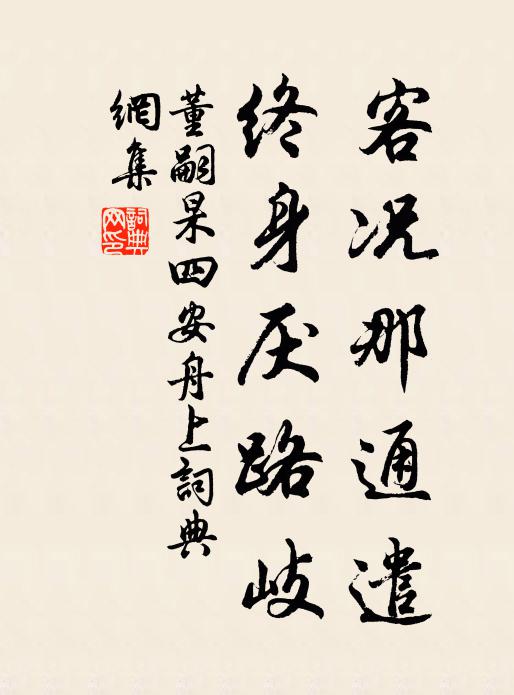 客况那通遣
终身厌路岐
董嗣杲四安舟上詞典
網集
詞典
网印